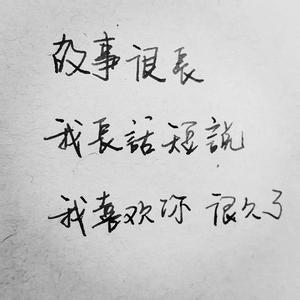 故事很長
我長話短說
我喜欢你 很久了